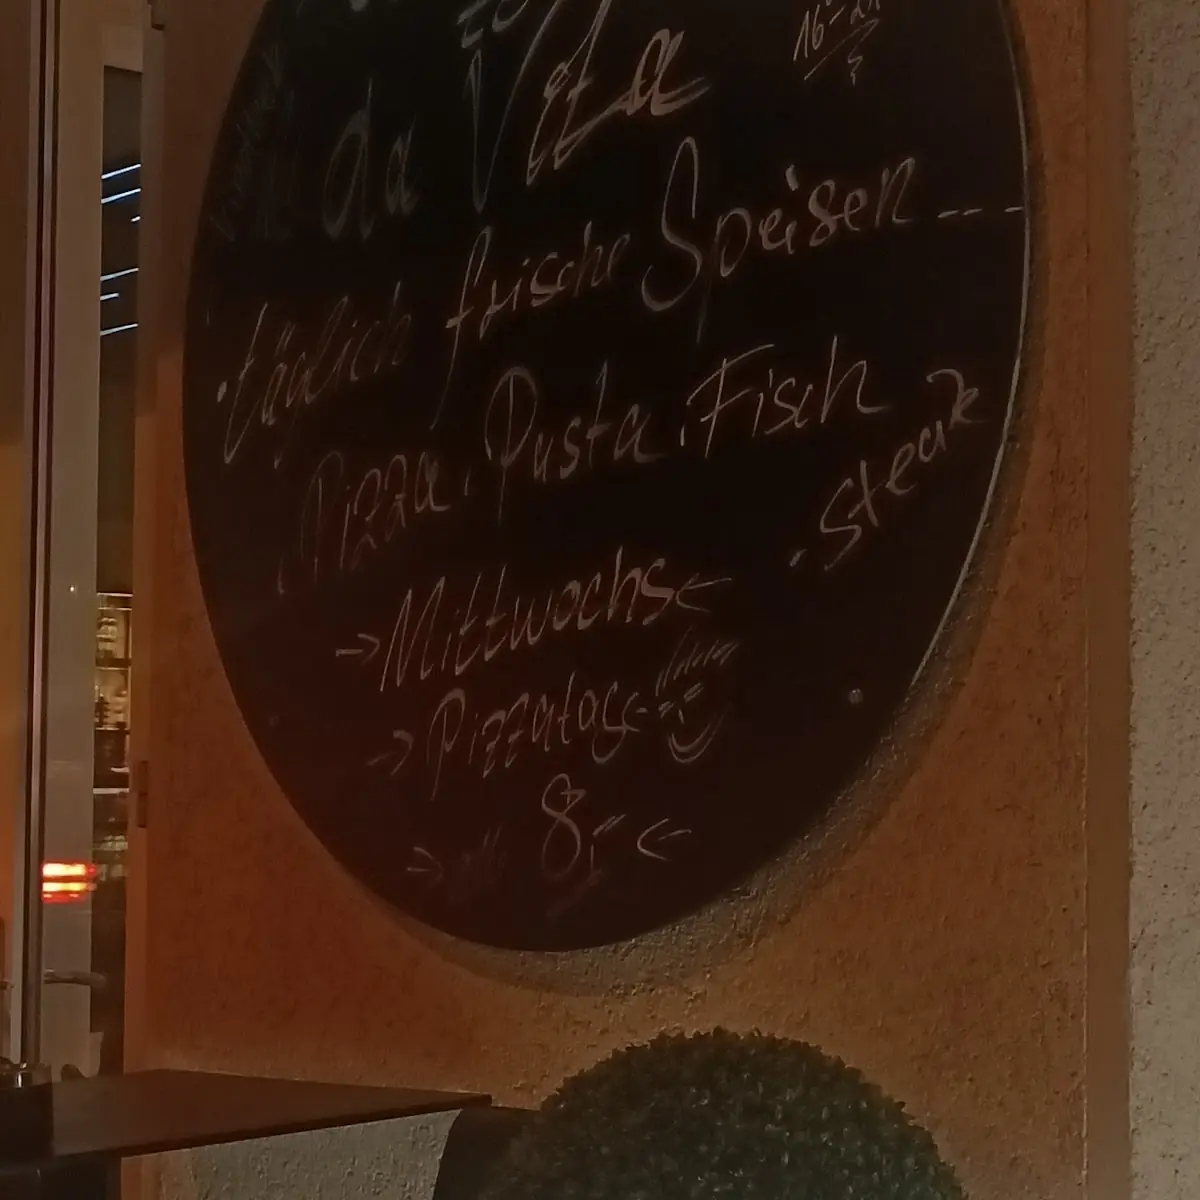 da Vita
täglich frische Speisen ---
Pizza, Pasta, Fisch
. Steak
→ Mittwochs ←
→ Pizzatag ←
→ alle 8,- ←